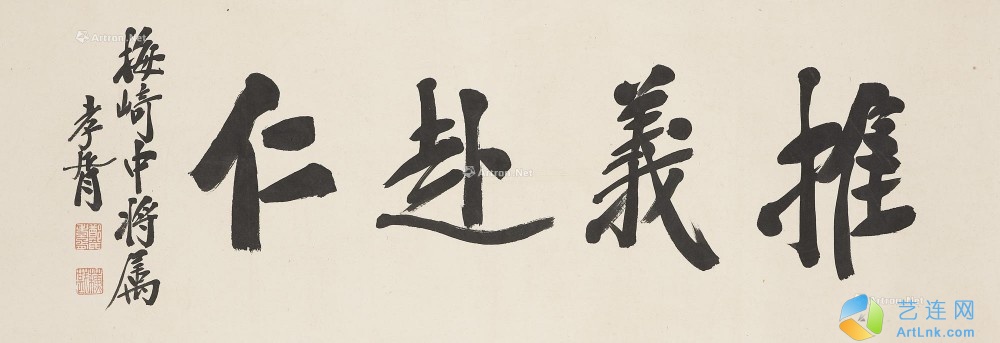 推義赴仁
梅崎中將属
孝胥
Artron.Net
Artron.Net
Artron.Net
艺连网
ArtLnk.com